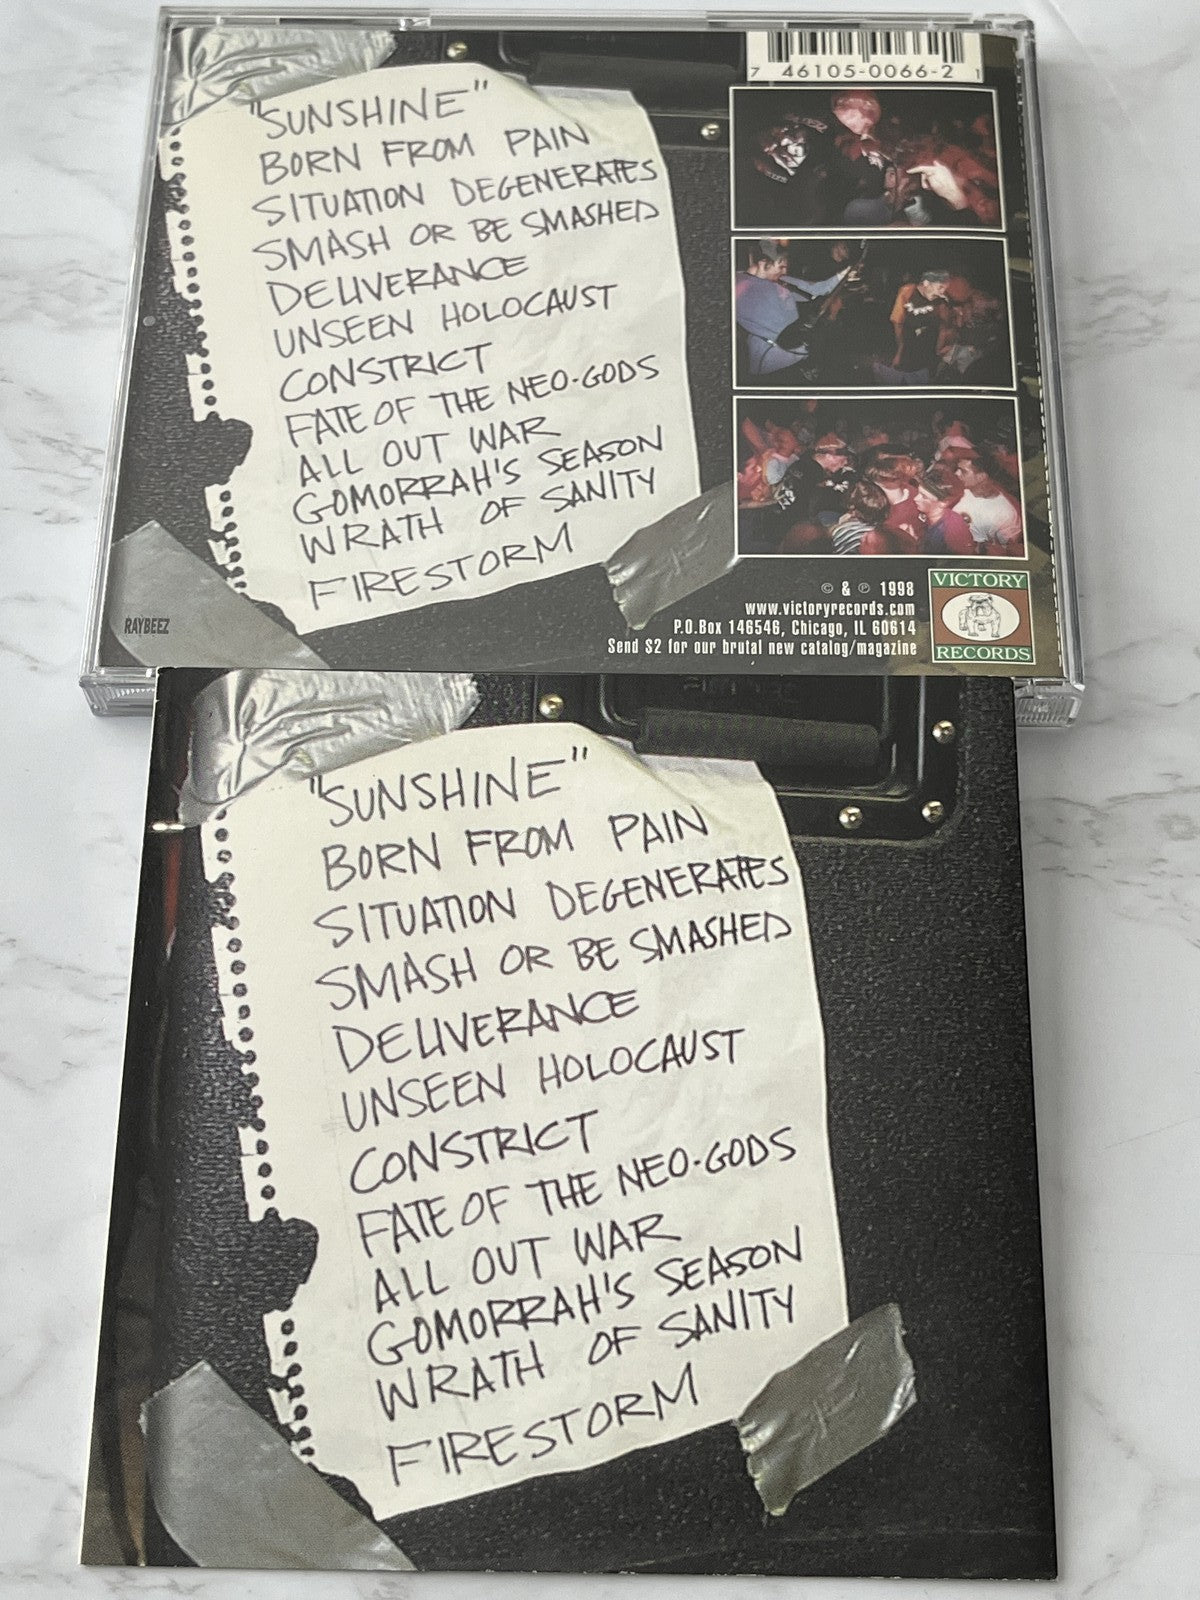 7 46105-0066-2 1
"SUNSHINE"
BORN FROM PAIN
SITUATION DEGENERATES
SMASH OR BE SMASHED
DELIVERANCE
UNSEEN HOLOCAUST
CONSTRICT
FATE OF THE NEO-GODS
ALL OUT WAR
GOMORRAH'S SEASON
WRATH OF SANITY
FIRESTORM
RAYBEEZ
© & ℗ 1998
www.victoryrecords.com
P.O.Box 146546, Chicago, IL 60614
Send $2 for our brutal new catalog/magazine
VICTORY
RECORDS
"SUNSHINE"
BORN FROM PAIN
SITUATION DEGENERATES
SMASH OR BE SMASHED
DELIVERANCE
UNSEEN HOLOCAUST
CONSTRICT
FATE OF THE NEO-GODS
ALL OUT WAR
GOMORRAH'S SEASON
WRATH OF SANITY
FIRESTORM